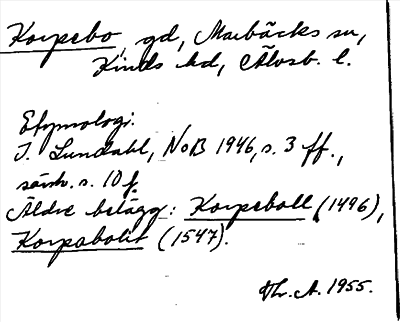 Korpebo, gd, Marbäcks sn,
Kinds hd, Älvsb. l.
Etymologi:
I. Lundahl, NoB 1946, s. 3 ff.,
särsk. s. 10 f.
Äldre belägg: Korpeboll (1496),
Korpabolit (1547).
Thr. A. 1955.